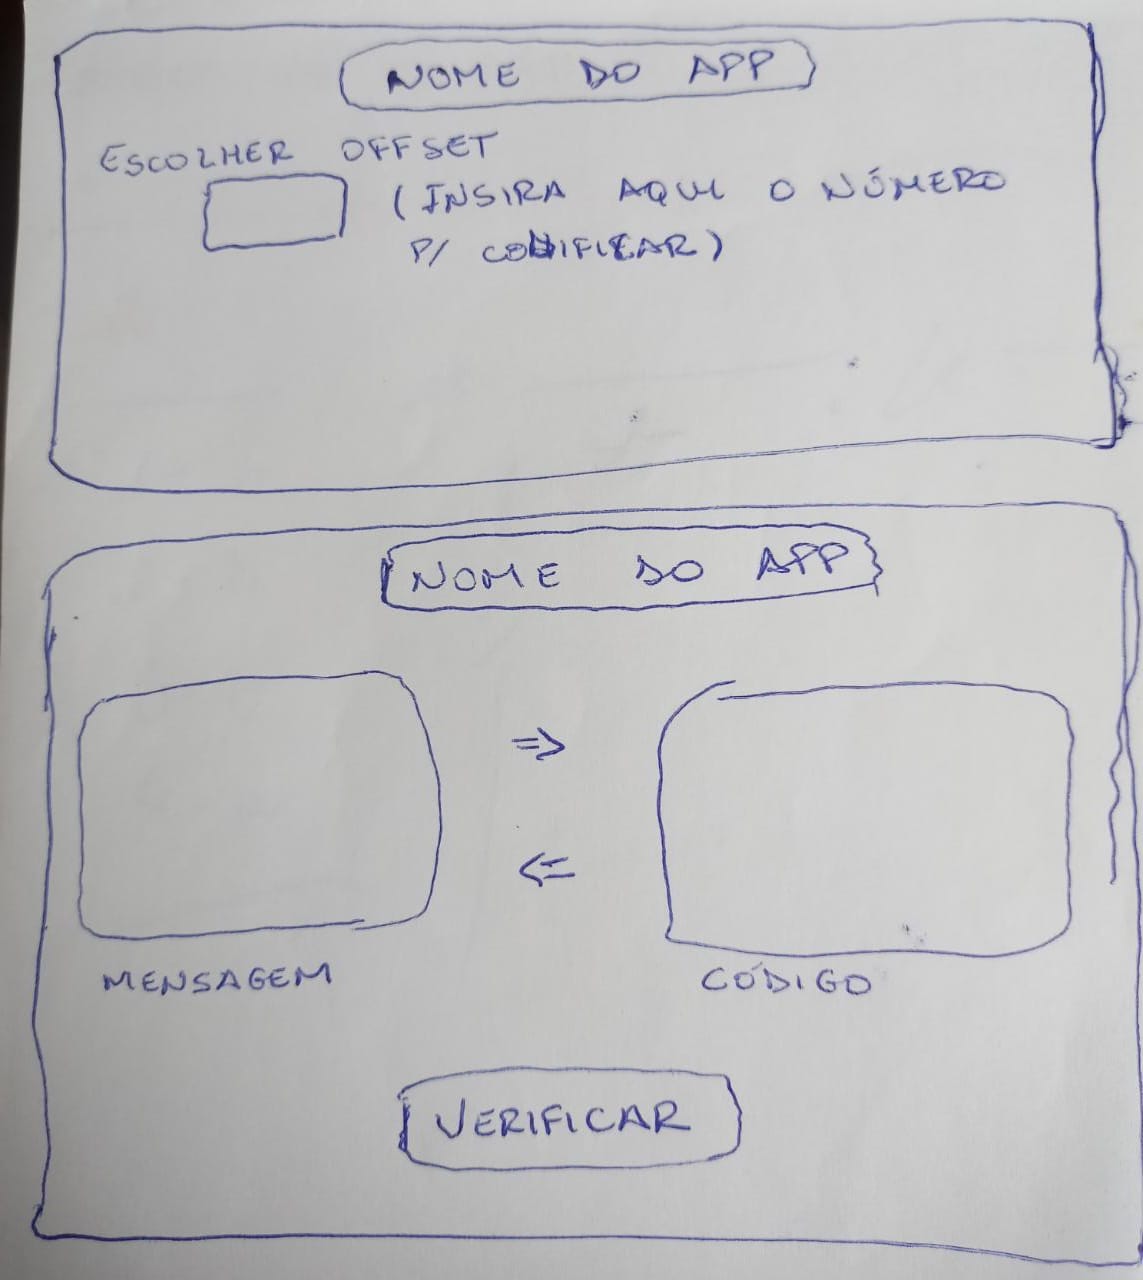 NOME DO APP
ESCOLHER OFFSET
(INSIRA AQUI O NÚMERO
P/ CODIFICAR)
NOME DO APP
⇒
⇐
MENSAGEM
CÓDIGO
VERIFICAR